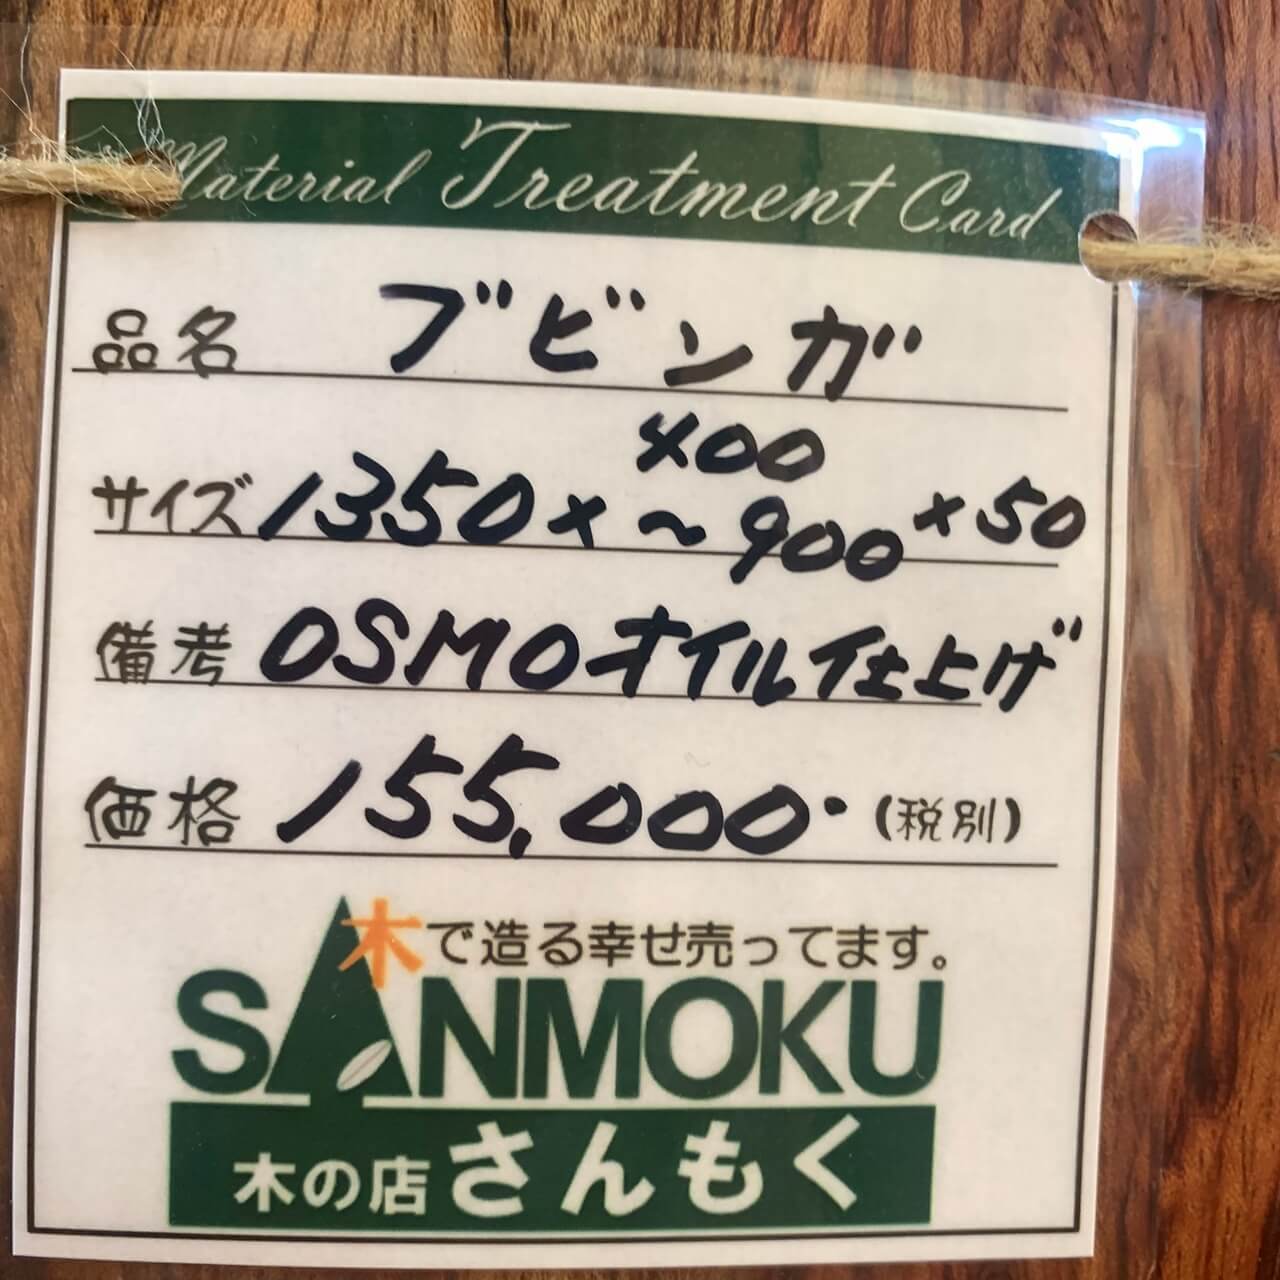 Material Treatment Card
品名 ブビンガ
サイズ 1350×400~900×50
備考 OSMOオイル仕上げ
価格 155,000・(税別)
木で造る幸せ売ってます。
SANMOKU
木の店さんもく